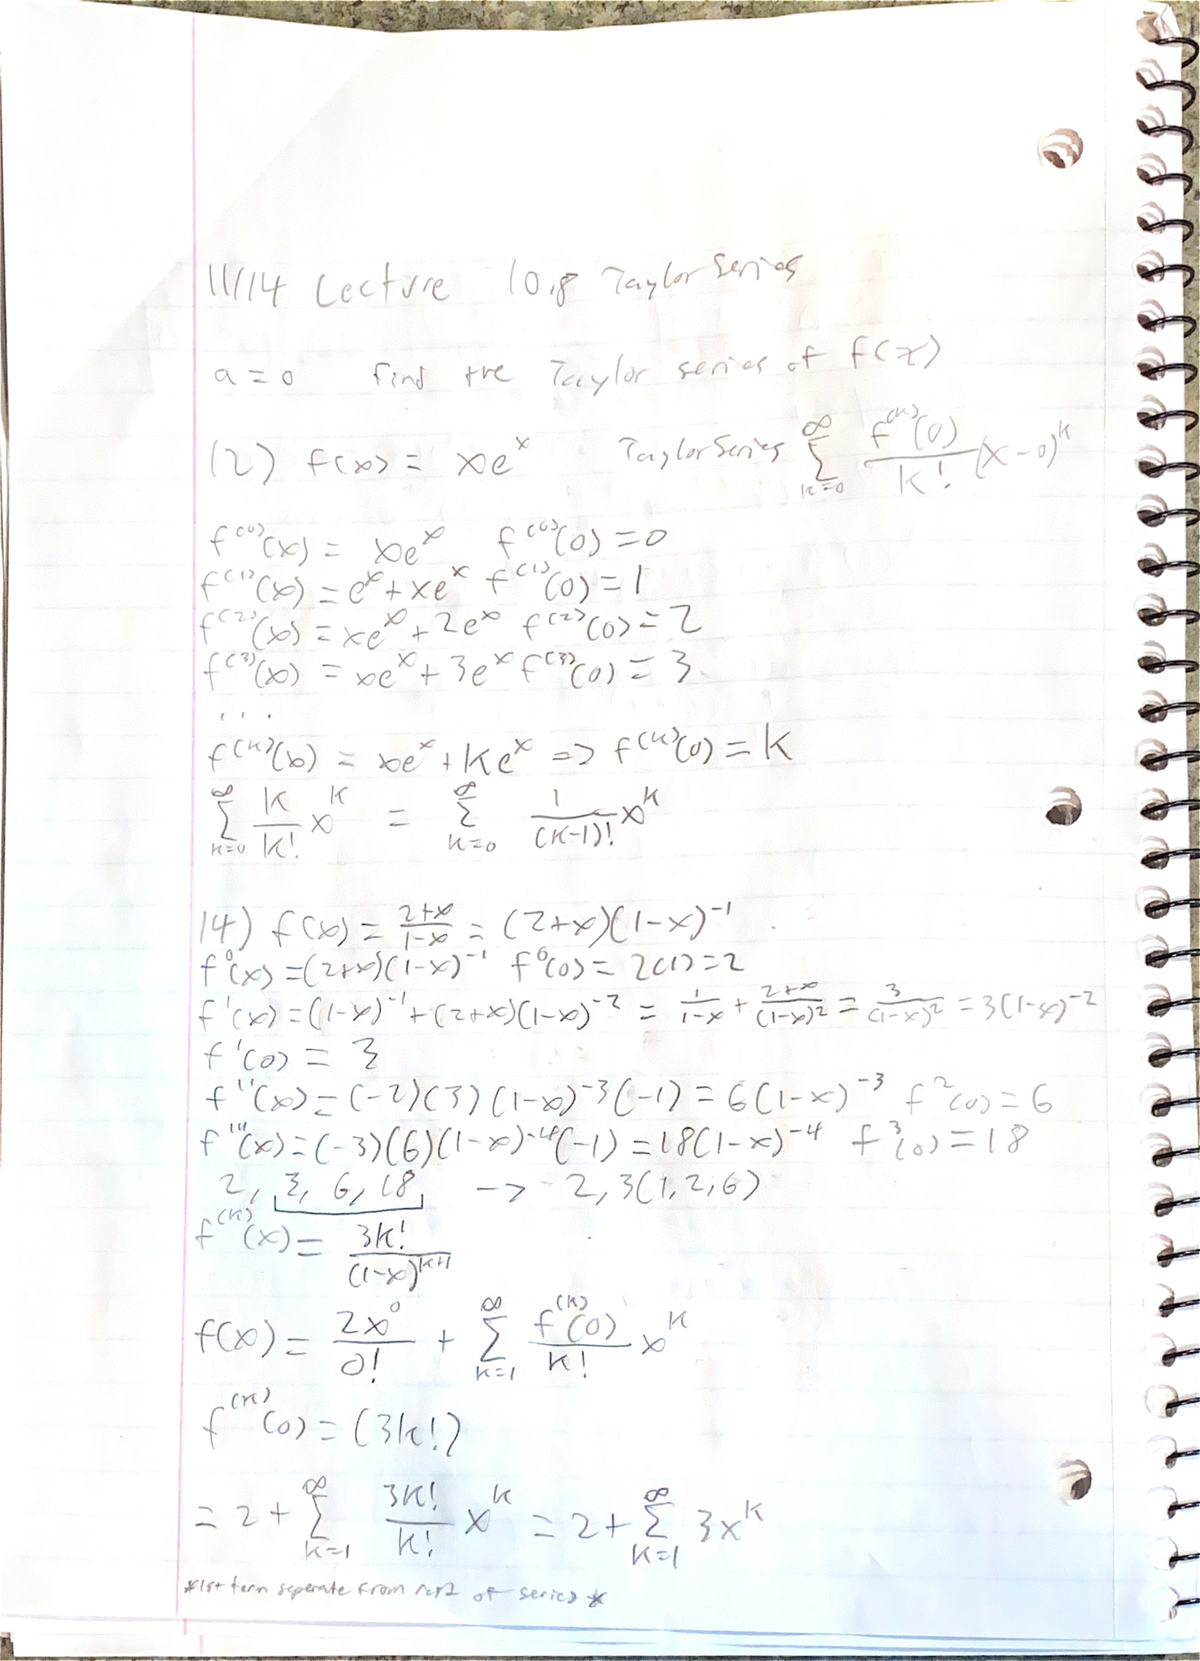 11/14 Lecture 10.8 Taylor Series
a = 0 find the Taylor series of f(x)
(2) f(x) = xe^x Taylor Series ∞ Σ k=0 f^(k)(0)/k! (x-0)^k
f^(0)(x) = xe^x f^(0)(0) = 0
f^(1)(x) = e^x + xe^x f^(1)(0) = 1
f^(2)(x) = xe^x + 2e^x f^(2)(0) = 2
f^(3)(x) = xe^x + 3e^x f^(3)(0) = 3.
...
f^(k)(x) = xe^x + ke^x => f^(k)(0) = k
∞ Σ k=0 k/k! x^k = ∞ Σ k=0 1/(k-1)! x^k
14) f(x) = 2+x/1-x = (2+x)(1-x)^-1
f^0(x) = (2+x)(1-x)^-1 f^0(0) = 2(1) = 2
f'(x) = (1-x)^-1 + (2+x)(1-x)^-2 = 1/1-x + 2+x/(1-x)^2 = 3/(1-x)^2 = 3(1-x)^-2
f'(0) = 3
f''(x) = (-2)(3)(1-x)^-3(-1) = 6(1-x)^-3 f^2(0) = 6
f'''(x) = (-3)(6)(1-x)^-4(-1) = 18(1-x)^-4 f^3(0) = 18
2, 3, 6, 18 -> 2, 3(1, 2, 6)
f^(k)(x) = 3k!/(1-x)^k+1
f(x) = 2x^0/0! + ∞ Σ k=1 f^(k)(0)/k! x^k
f^(k)(0) = (3k!)
= 2 + ∞ Σ k=1 3k!/k! x^k = 2 + ∞ Σ k=1 3x^k
*1st term seperate from rest of series*